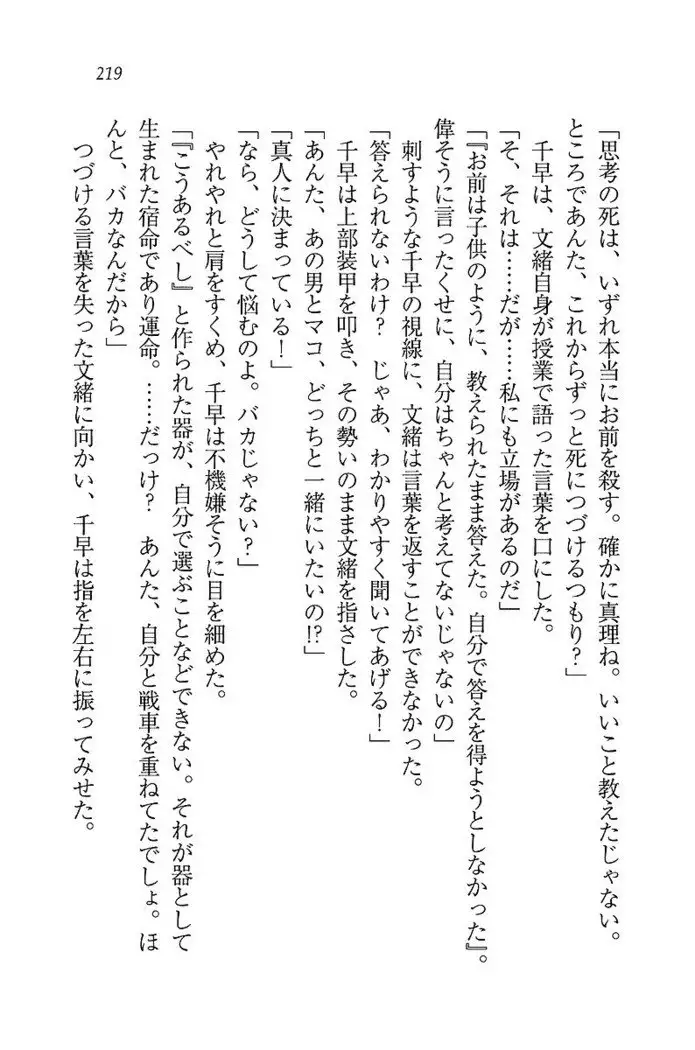 219
「思考の死は、いずれ本当にお前を殺す。確かに真理ね。いいこと教えたじゃない。
ところであんた、これからずっと死につづけるつもり？」
千早は、文緒自身が授業で語った言葉を口にした。
「そ、それは……だが……私にも立場があるのだ」
「『お前は子供のように、教えられたまま答えた。自分で答えを得ようとしなかった』。
偉そうに言ったくせに、自分はちゃんと考えてないじゃないの」
刺すような千早の視線に、文緒は言葉を返すことができなかった。
「答えられないわけ？　じゃあ、わかりやすく聞いてあげる！」
千早は上部装甲を叩き、その勢いのまま文緒を指さした。
「あんた、あの男とマコ、どっちと一緒にいたいの!?」
「真人に決まっている！」
「なら、どうして悩むのよ。バカじゃない？」
やれやれと肩をすくめ、千早は不機嫌そうに目を細めた。
「『こうあるべし』と作られた器が、自分で選ぶことなどできない。それが器として
生まれた宿命であり運命。……だっけ？　あんた、自分と戦車を重ねてたでしょ。ほ
んと、バカなんだから」
つづける言葉を失った文緒に向かい、千早は指を左右に振ってみせた。